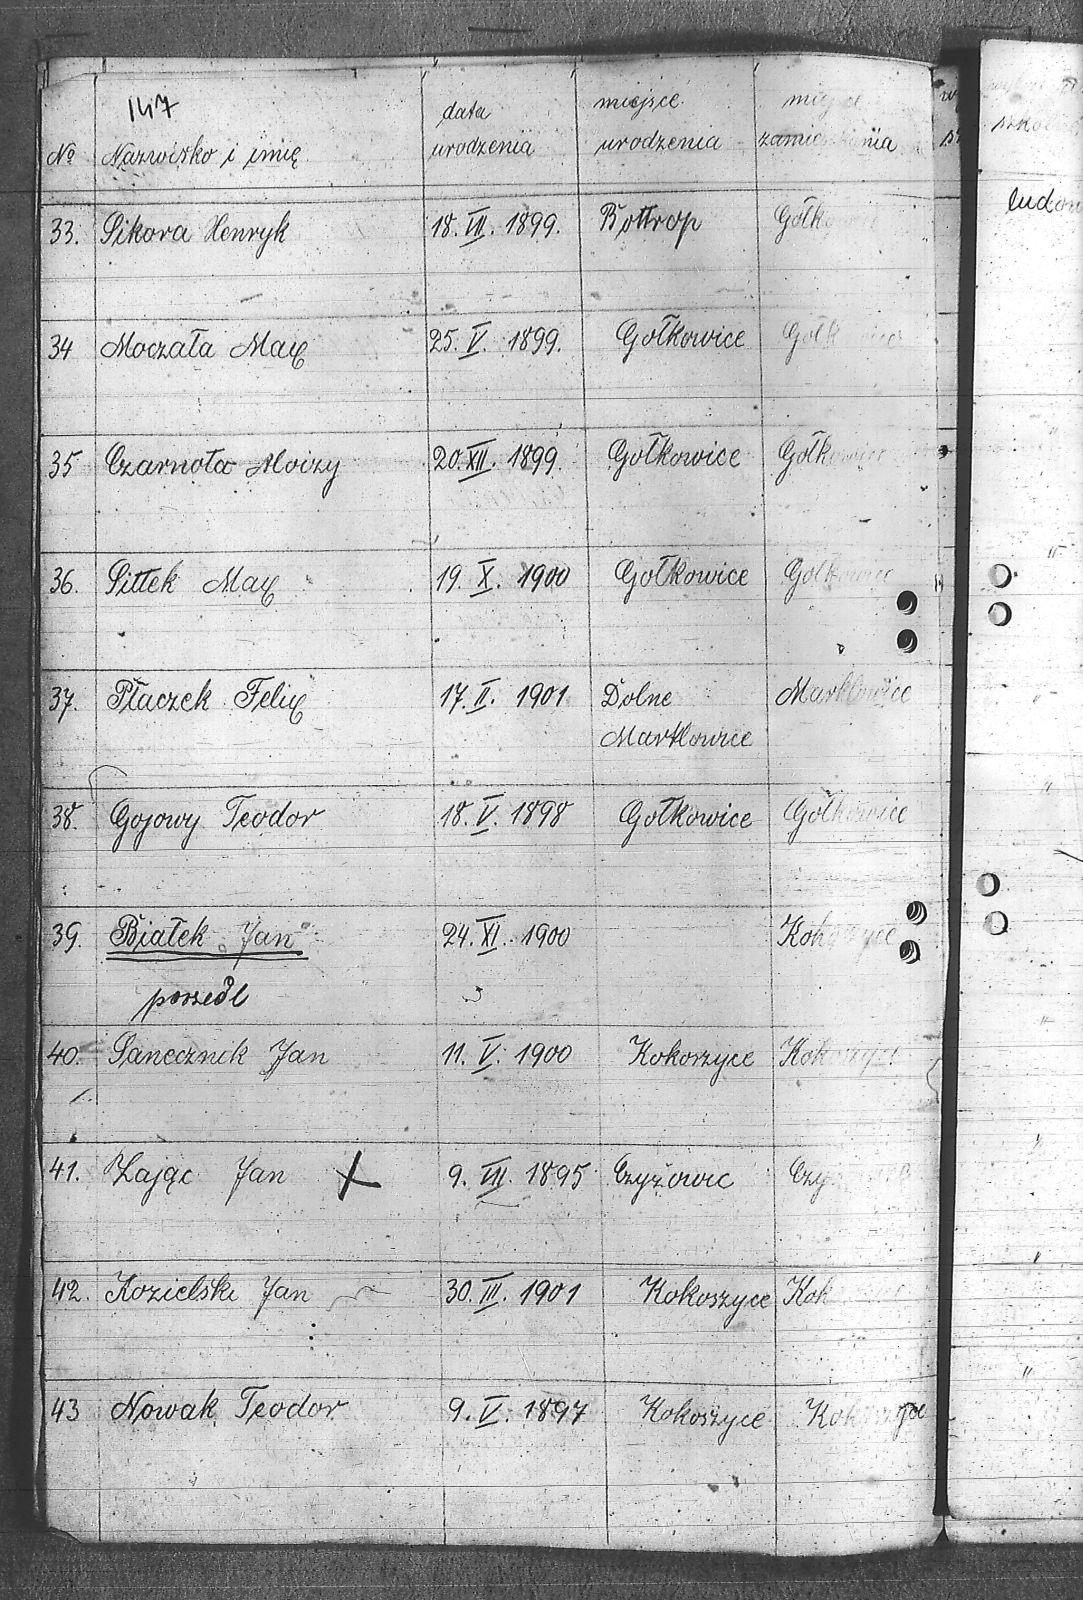 147
№ Nazwisko i imię data urodzenia miejsce urodzenia
szkol
33. Sikora Henryk 18. VII. 1899. Bottrop Gołk
ludow
34 Moczała Max 25. V. 1899. Gołkowice Gołkowice
35 Czarnota Aloizy 20. XII. 1899. Gołkowice Gołkowice
36. Pittek Max 19. X. 1900 Gołkowice Gołkowice
37. Płaczek Felix 17. II. 1901 Dolne Marklowice
Marklowice
38. Gojowy Teodor 18. V. 1898 Gołkowice Gołkowice
39. Białek „Jan” 24. XI. 1900 Kokoszyce
poszedł
40. Panecznik Jan 11. V. 1900 Kokoszyce Kokoszyce
41. Zając Jan X 9. VII. 1895 Czyżowic Czy
42. Kozielski Jan 30. III. 1901 Kokoszyce Kok
43 Nowak Teodor 9. V. 1897 Kokoszyce Kokoszyce